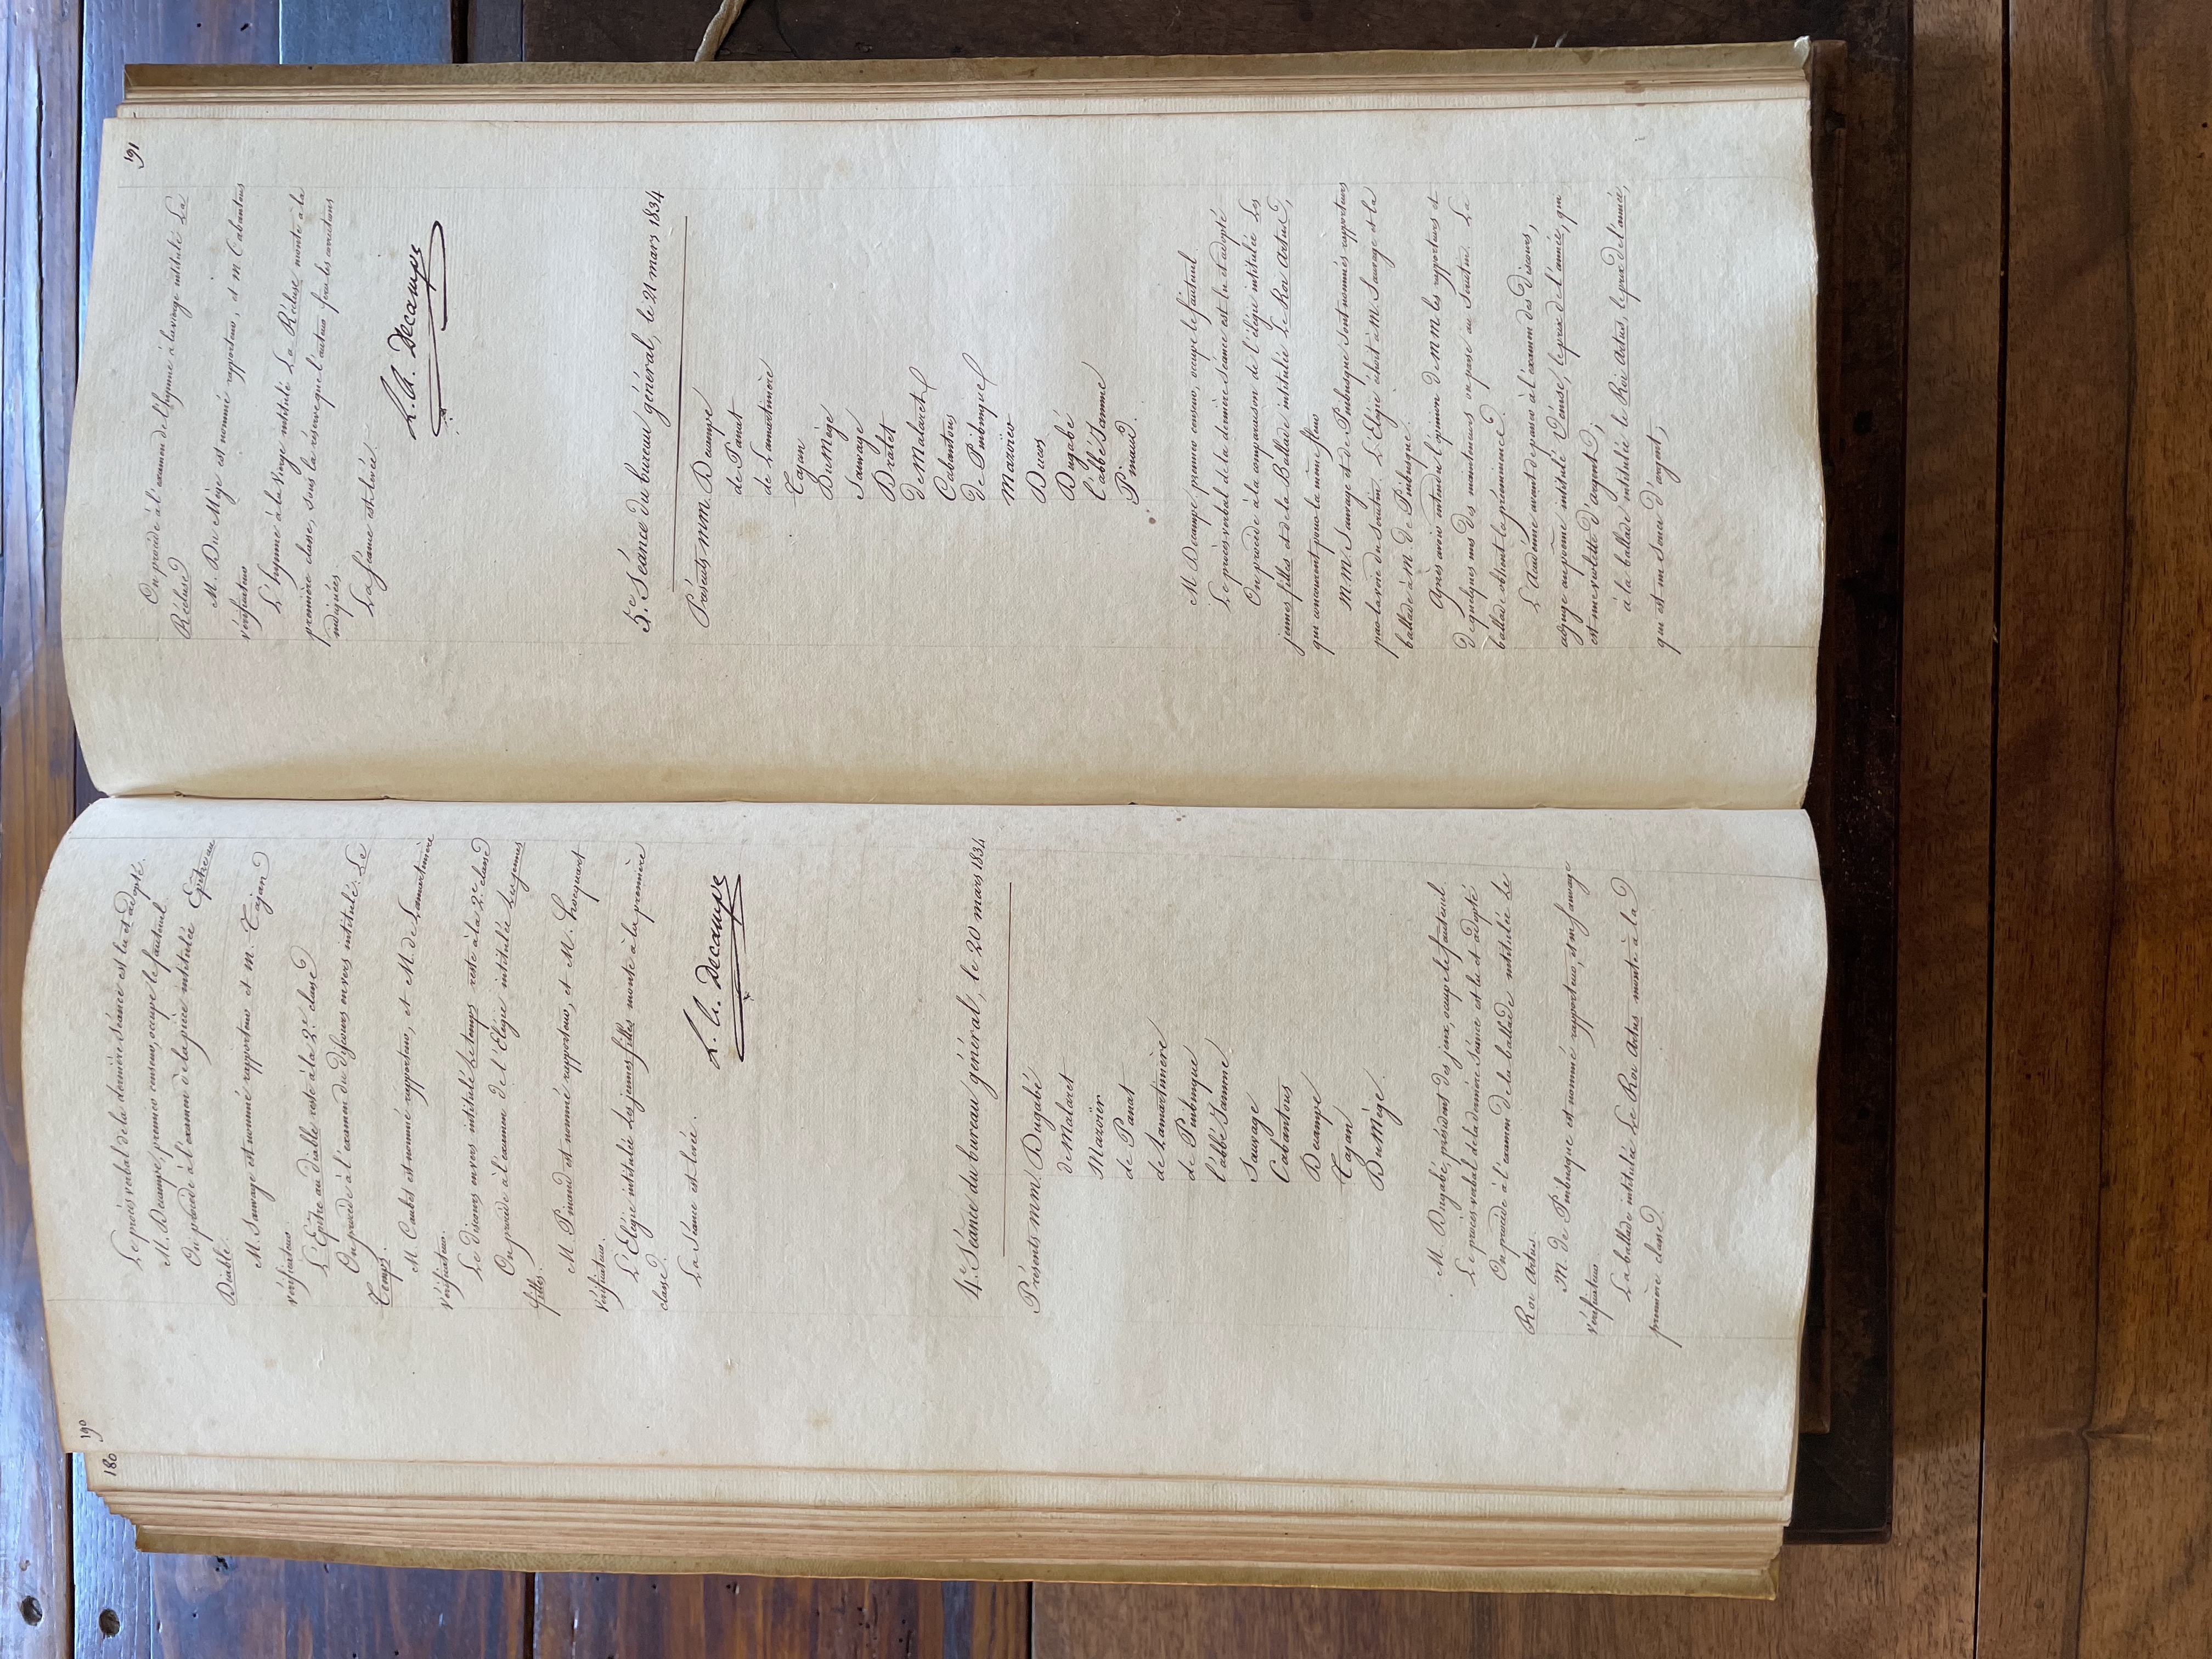 180
190
Le procès verbal de la dernière séance est lu et adopté.
M. Decampe, premier censeur, occupe le fauteuil.
On procède à l'examen de la pièce intitulée Epitre au
Diable.
M. Sauvage est nommé rapporteur et m. Tajan
vérificateur.
L'Epître au diable reste à la 2e. classe
On procède à l'examen du discours en vers intitulé. Le
Temps.
M. Caubet est nommé rapporteur, et M. de Lamartinière
vérificateur.
Le discours en vers intitulé Le temps reste à la 2e. classe
On procède à l'examen de l'Elégie intitulée Les jeunes
filles.
M. Pinaud est nommé rapporteur, et M. hocquart
vérificateur.
L'Elégie intitulée Les jeunes filles monte à la première
classe.
La Séance est levée.
Decampe
4e. Séance du bureau général, le 20 mars 1834
Présents mm. Dugabé
de Malaret
Mazoïer
de Panat
de Lamartinière
de Puibusque
l'abbé Jamme
Sauvage
Cabantous
Decampe
Tajan
Dumège.
M. Dugabé, président des jeux, occupe le fauteuil.
Le procès verbal de la dernière séance est lu et adopté
On procède à l'examen de la ballade intitulée Le
Roi Artus.
M. de Puibusque est nommé rapporteur, et m sauvage
vérificateur.
La ballade intitulée Le Roi Artus monte à la
première classe.
191
On procède à l'examen de l'hymne à la vierge intitulé La
Récluse
M. Du Mège est nommé rapporteur, et m. Cabantous
vérificateur
L'hymne à la Vierge intitulé La Récluse monte à la
première classe, sous la réserve que l'auteur fera les corrections
indiquées.
La Séance est levée.
Decampe
5e. Séance du bureau général, le 21 mars 1834
Présents mm. Decampe
de Panat
de Lamartinière
Tajan
DuMège
Sauvage
Dralet
de Malaret
Cabantous
de Puibusque
Mazoïer
Ducos
Dugabé
l'abbé Jamme
Pinaud.
M Decampe premier censeur, occupe le fauteuil.
Le procès verbal de la dernière séance est lu et adopté
On procède à la comparaison de l'élégie intitulée Les
jeunes filles et de la Ballade intitulée Le Roi Artus,
qui concourent pour la même fleur
M.M. Sauvage et de Puibusque sont nommés rapporteurs
par la voie du scrutin. L'Elégie échoit à M. Sauvage et la
ballade à M de Puibusque.
Après avoir entendu l'opinion de m m les rapporteurs et
de quelques uns des mainteneurs on passe au Scrutin. La
ballade obtient la prééminence.
L'Académie avant de passer à l'examen des Discours,
adjuge au poème intitulé Venise, le prix de l'année, qui
est une violette d'argent;
à la ballade intitulée le Roi Artus, le prix de l'année,
qui est un Souci d'argent;